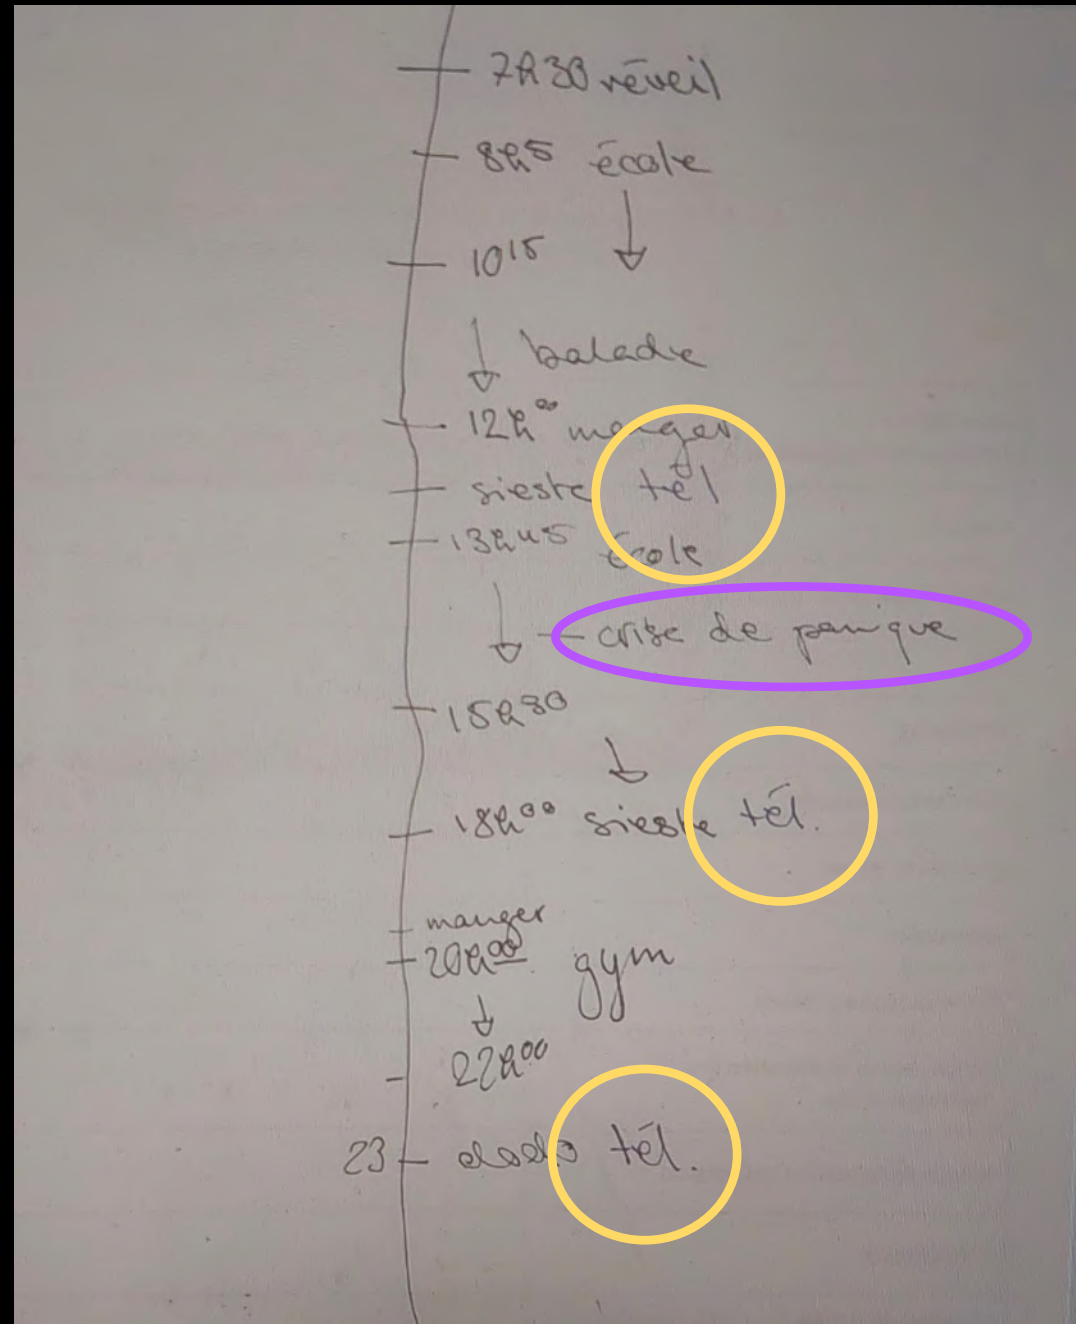 7h30 réveil
8h5 école
10 15
balade
12h00 manger
sieste tél
13h45 école
crise de panique
15h30
18h00 sieste tél.
manger
20h00 gym
22h00
23 dodo tél.